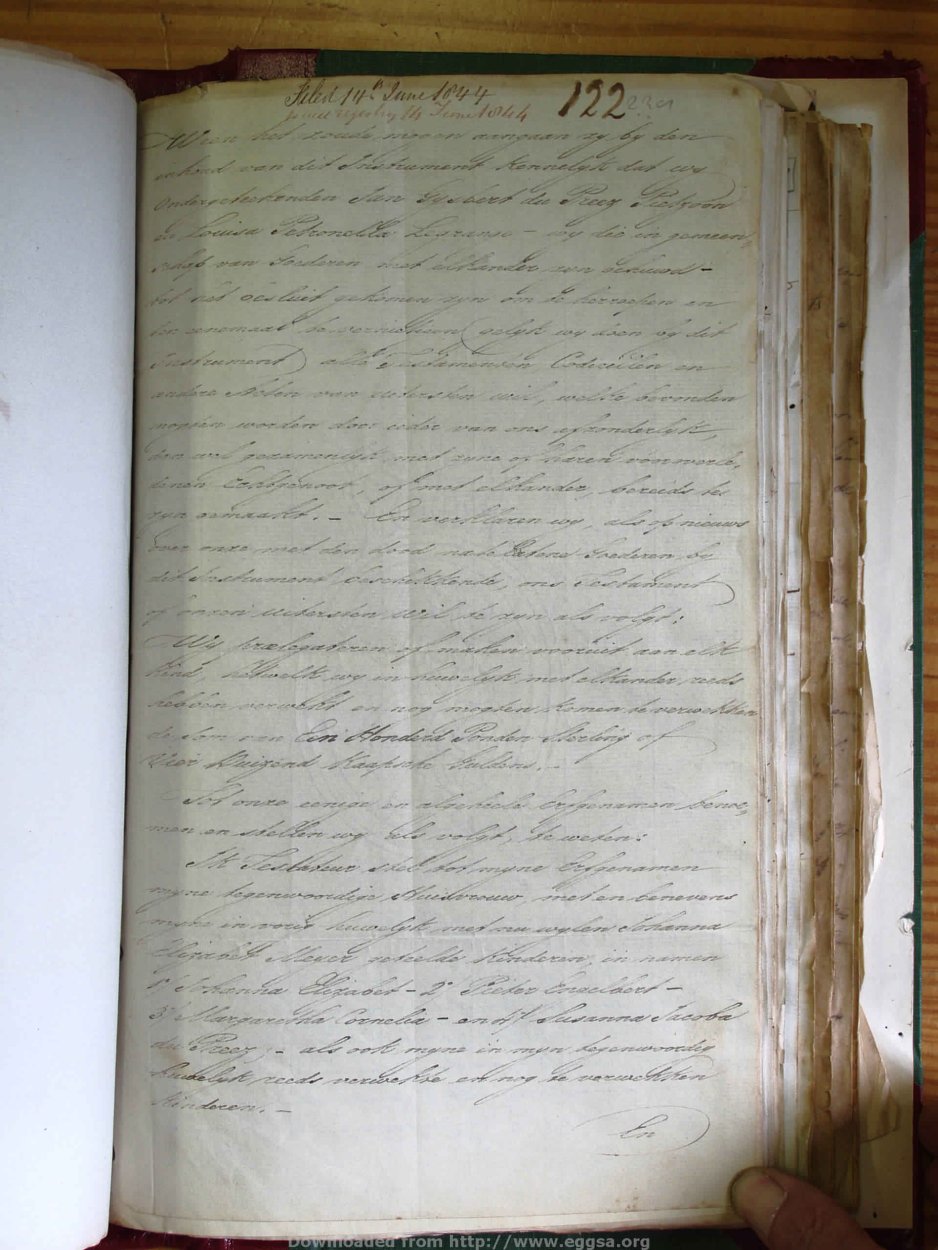 Filed 14th June 1844
14 June 1844
122
Wien het zoude mogen aangaan zy by den
inhoud van dit Instrument kennelyk dat wy
Ondergeteekenden Jan Gysbert du Preez Pietzoon
en Louisa Petronella Legrange – wy die in gemeen,
schap van Goederen met elkander zyn gehuwd –
tot het besluit gekomen zyn om te herroepen en
ten eenemaal te vernietigen (gelyk wy doen by dit
Instrument) alle Testamenten Codicillen en
andere Acten van uitersten wil, welke bevonden
mogten worden door ieder van ons afzonderlyk,
dan wel gezamenlyk met zyne of haren voorover,
ledenen Echtgenoot, of met elkander, bereids te
zyn gemaakt. – En verklaren wy, als op nieuws
over onze met den dood na te laten Goederen by
dit Instrument beschikkende, ons Testament
of onzen uitersten wil te zyn als volgt:
Wy prælegateren of maken vooruit aan elk
Kind, hetwelk wy in huwelyk met elkander reeds
hebben verwekt en nog mogten komen te verwekken
de som van Een Honderd Ponden Sterling of
Vier Duizend Kaapsche Guldens. –
Tot onze eenige en algeheele Erfgenamen benoe,
men en stellen wy als volgt, te weten:
Ik Testateur stel tot myne Erfgenamen
myne tegenwoordige Huisvrouw, met en benevens
myne in vorig huwelyk met nu wylen Johanna
Elizabet Meyer geteelde Kinderen, in namen
1° Johanna Elizabet – 2° Pieter Engelbert –
3° Margaretha Cornelia – en 4° Susanna Jacoba
du Preez, – als ook myne in myn tegenwoordig
huwelyk reeds verwekte en nog te verwekken
Kinderen. –
En
Downloaded from http://www.eggsa.org